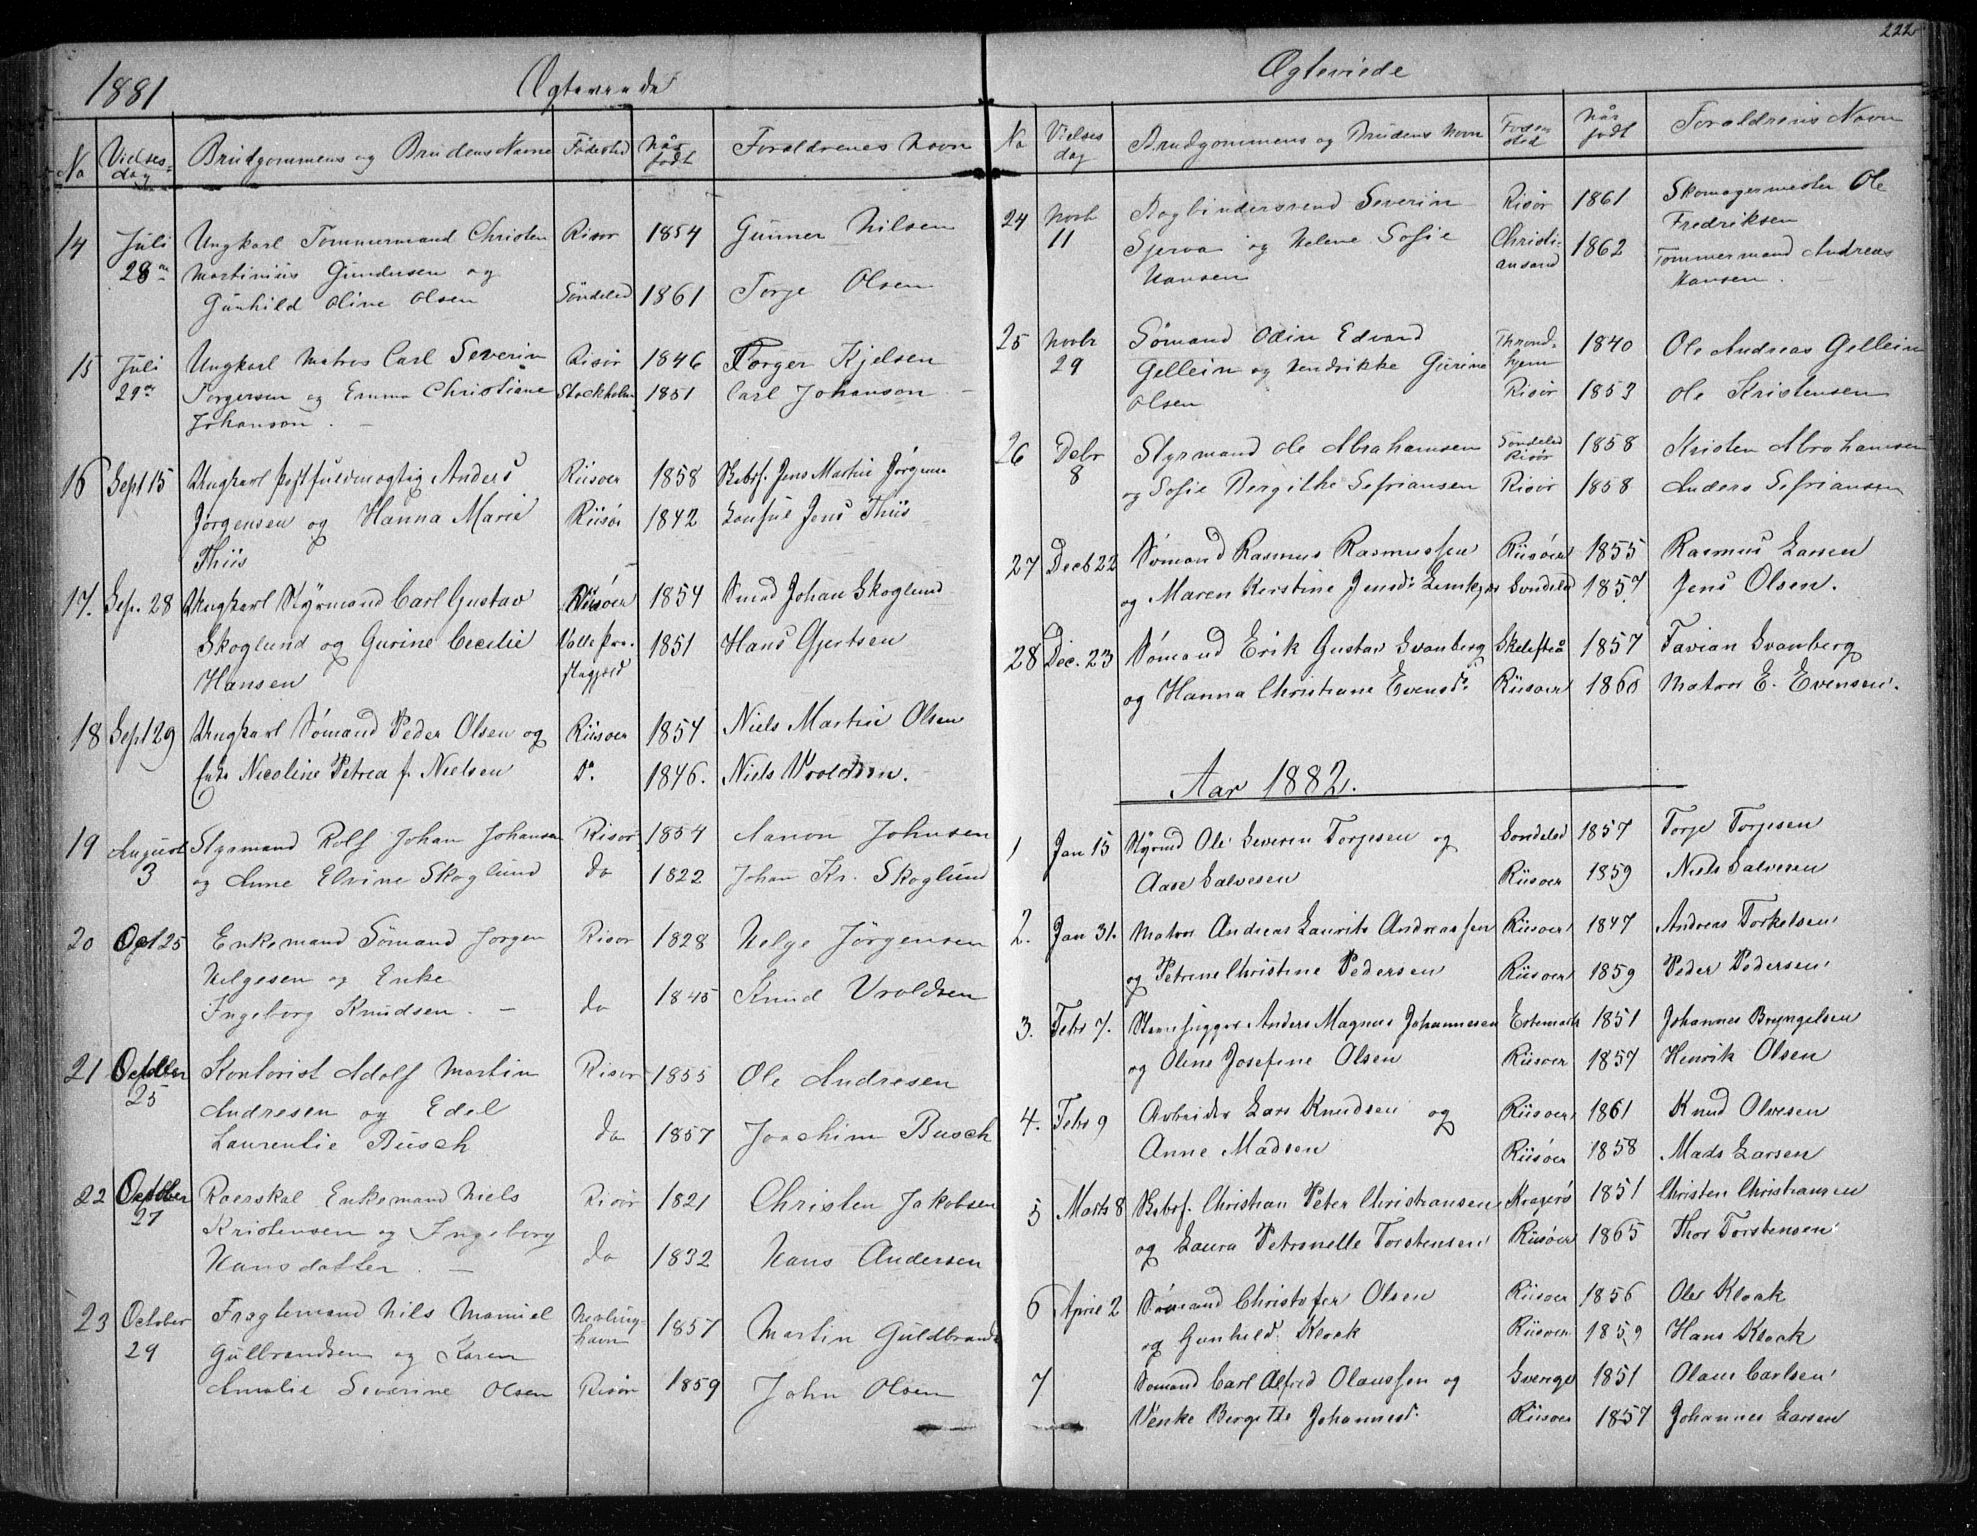 1881
Ægteviede
No
Vielses-
dag
Brudgommens og Brudens Navne
Födested
Når
födt
Foraldrenes Navn
14
Juli
28
Ungkarl Tømmermand Christen
Martinius Gundersen og
Gunhild Oline Olsen
Risør
Söndeled
1854
1861
Gunner Nilsen
Torje Olsen
15
Juli
29
Ungkarl Matros Carl Severin
Torgersen og Emma Christiane
Johanson
Risør
Stockholm
1846
1851
Torger Kjelsen
Carl Johanson
16
Sept 15
Ungkarl Postfuldmægtig Anders
Jørgensen og Hanna Marie
Thiis
Riisøer
Riisør
1858
1842
Skbrf. Jens Martin Jørgens
Consul Jens Thiis
17.
Sep. 28
Ungkarl Styrmand Carl Gustav
Skoglund og Gurine Cecilie
Hansen
Riisøer
Valle Præ-
stegjeld
1854
1851
Smed Johan Skoglund
Hans Gjertsen
18
Sept 29
Ungkarl Sømand Peder Olsen og
Enke Nicoline Petrea f. Nielsen
Riisøer
Do.
1854
1846.
Niels Martin Olsen
Niels Vroldsen.
19
August
3
Styrmand Rolf Johan Johansen
og Anne Elvine Skoglund
Risør
do
1854
1822
Aanon Johnsen
Johan Kr. Skoglund
20
Oct 25
Enkemand Sömand Jørgen
Helgesen og Enke
Ingeborg Knudsen.
Risør
do
1828
1845
Helge Jörgensen
Knud Vroldsen
21
October
25
Kontorist Adolf Martin
Andresen og Edel
Laurentie Busch
Risør
do
1855
1857
Ole Andresen
Joachim Busch
22
October
27
Enkemand Niels
Kristensen og Ingeborg
Hansdatter.
Risør
do
1821
1832
Christen Jakobsen
Hans Andersen
23
October
29
Fragtemand Nils Manuel
Gulbrandsen og Karen
Amalie Severine Olsen
havn
Risør
1857
1859
Martin Guldbrands
John Olsen
222
Ægteviede
No
Vielses
dag
Brudgommens og Brudens Navn
Føde-
sted
Når
födt
Foraldrenes Navn
24
Novb
11
Bogbindersvend Severin
Sjerva og Helene Sofie
Hansen
Risør
Christi-
ansand
1861
1862
Skomagermester Ole
Fredriksen
Tømmermand Andreas
Hansen.
25
Novbr
29
Sömand Odin Edvard
Gellein og Hendrikke Gurine
Olsen
Thrond-
hjem
Risør
1840
1853
Ole Andreas Gellein
Ole Kristensen
26
Debr
8
Styrmand Ole Abrahamsen
og Sofie Bergithe Sefriansen
Söndeled
Risør
Risør
1858
1858
Kristen Abrahamsen
Anders Sefriansen
27
Decb 22
Sømand Rasmus Rasmussen
og Maren Kirstine Jensd.
Riisøer
Söndeled
1855
1857.
Rasmus Larsen
Jens Olsen.
28
Dec. 23
Sømand Erik Gustav Svanberg
og Hanna Christiane Evensd.
Skelefteå
Riisøer
1857
1860
Favian Svanberg
Matros E. Evensen.
Aar 1882.
1
Jan 15
Styrmd Ole Severin Torjesen og
Aase Salvesen
Sondeled
Riisøer
1857
1859
Torje Torjesen
Niels Salvesen
2.
Jan 31.
Matros Andreas Laurits Andreassen
og Petrine Christine Pedersen
Riisøer
Riisøer
1847
1859
Andreas Torkelsen
Peder Pedersen
3.
Febr 7.
Stenhugger Anders Magnus Johannesen
og Oline Josefine Olsen
Riisøer
1851
1857
Johannes Bryngelsen
Henrik Olsen
4.
Febr 9
Arbeider Lars Knudsen og
Anne Madsen
Riisøer
Riisøer
1861
1858
Knud Olvesen
Mads Larsen
5
Marts 8
Skbrf. Christian Peter Christiansen
og Laura Petronelle Torstensen
Kragerö
Riisøer
1851
1865
Christen Christiansen
Thor Torstensen
6
April 2
Sømand Christofer Olsen
og Gunhild Klock
Riisøer
Riisøer
1856
1859
Ole Klock
Hans Klock
7
Sømand Carl Alfred Olaussen og
Venke Bergitte Johannesd.
Sverige
Riisøer
1851
1857
Olaus Carlsen
Johannes Larsen